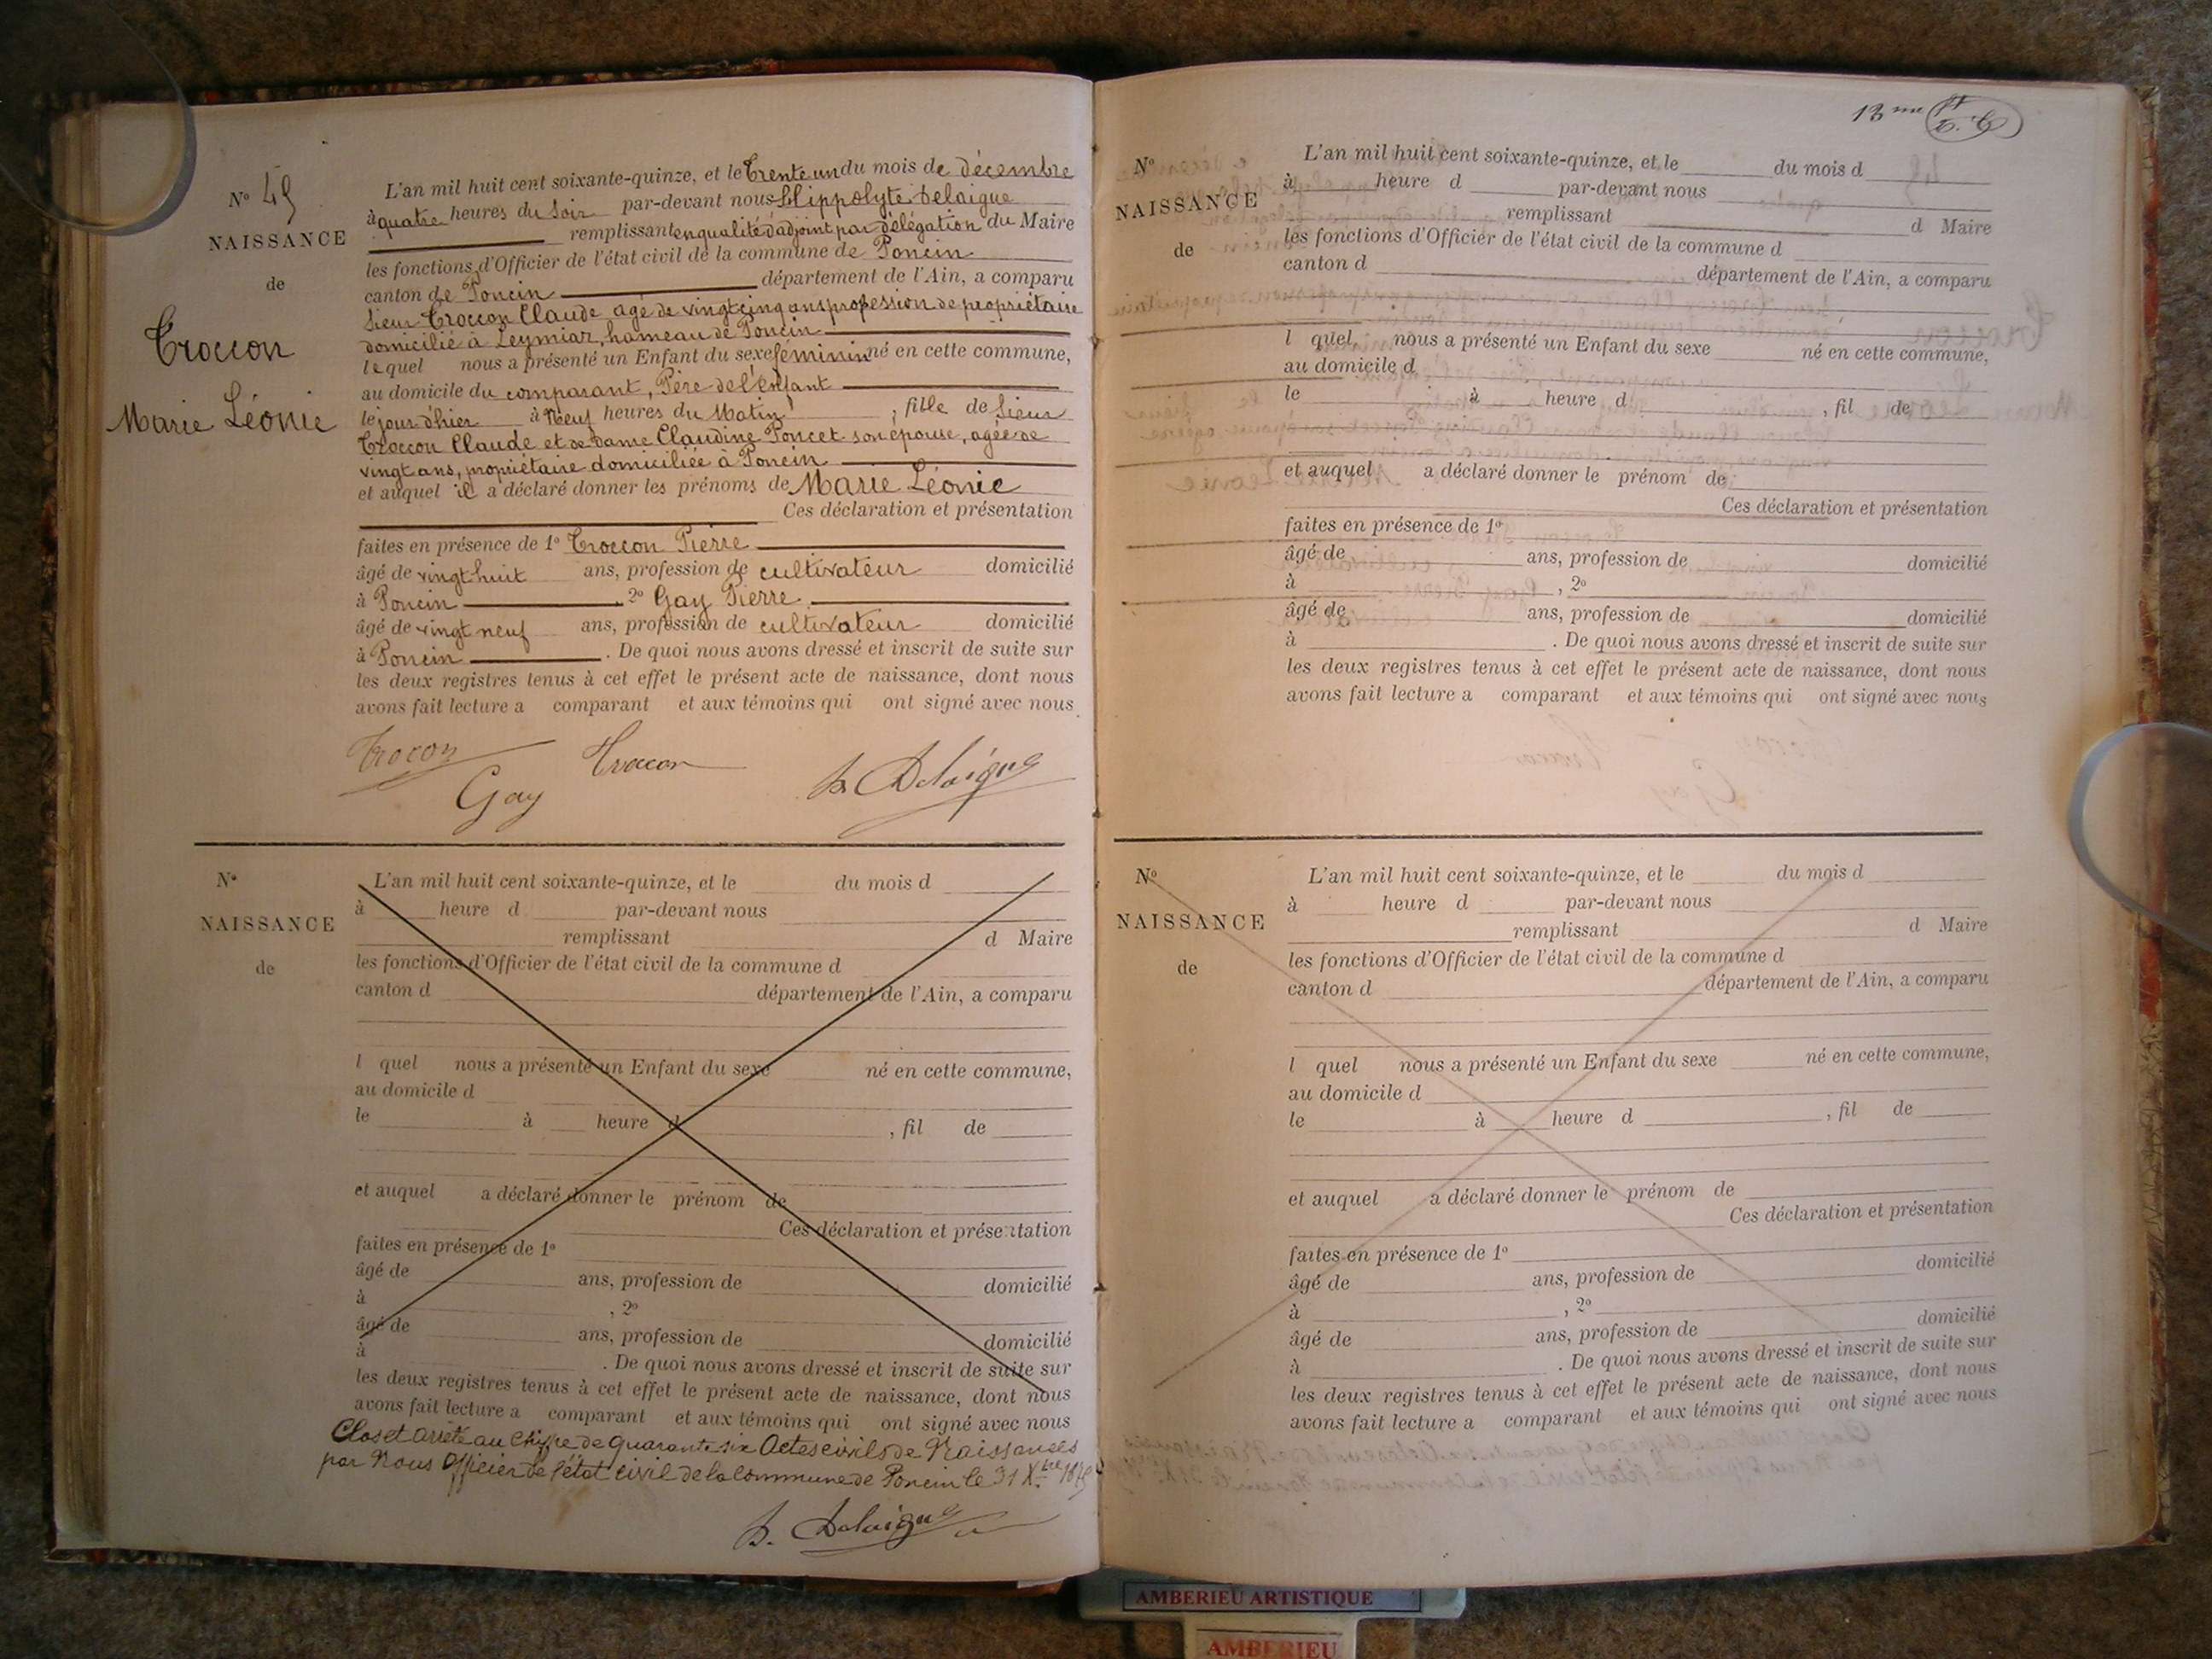 Nº 49
NAISSANCE
de
Troccon
Marie Léonie
L'an mil huit cent soixante-quinze, et le trente un du mois de décembre
à quatre heures du soir par-devant nous Hippolyte Delaigue
remplissant en qualité d'adjoint par délégation du Maire
les fonctions d'Officier de l'état civil de la commune de Poncin
canton de Poncin département de l'Ain, a comparu
sieur Troccon Claude agé de vingt cinq ans profession de propriétaire
domicilié à Leymiaz, hameau de Poncin
lequel nous a présenté un Enfant du sexe féminin né en cette commune,
au domicile du comparant, Père de l'enfant
le jour d'hier à Neuf heures du Matin , fille de sieur
Troccon Claude et de Dame Claudine Poncet son épouse, agée de
vingt ans, propriétaire domiciliée à Poncin
et auquel il a déclaré donner les prénoms de Marie Léonie
Ces déclaration et présentation
faites en présence de 1º Troccon Pierre
âgé de vingt huit ans, profession de cultivateur domicilié
à Poncin , 2º Gay Pierre
âgé de vingt neuf ans, profession de cultivateur domicilié
à Poncin . De quoi nous avons dressé et inscrit de suite sur
les deux registres tenus à cet effet le présent acte de naissance, dont nous
avons fait lecture a comparant et aux témoins qui ont signé avec nous
Trocon Troccon
Gay h. Delaigue
Nº
NAISSANCE
de
L'an mil huit cent soixante-quinze, et le du mois d
à heure d par-devant nous
remplissant d Maire
les fonctions d'Officier de l'état civil de la commune d
canton d département de l'Ain, a comparu
l quel nous a présenté un Enfant du sexe né en cette commune,
au domicile d
le à heure d , fil de
et auquel a déclaré donner le prénom de
Ces déclaration et présentation
faites en présence de 1º
âgé de ans, profession de domicilié
à , 2º
âgé de ans, profession de domicilié
à . De quoi nous avons dressé et inscrit de suite sur
les deux registres tenus à cet effet le présent acte de naissance, dont nous
avons fait lecture a comparant et aux témoins qui ont signé avec nous
Clos et arreté au chiffre de quarante six Actes civils de Naissances
par Nous Officier de l'état civil de la commune de Poncin le 31 Xbre 1875
h. Delaigue
13me
Nº
NAISSANCE
de
L'an mil huit cent soixante-quinze, et le du mois d
à heure d par-devant nous
remplissant d Maire
les fonctions d'Officier de l'état civil de la commune d
canton d département de l'Ain, a comparu
l quel nous a présenté un Enfant du sexe né en cette commune,
au domicile d
le à heure d , fil de
et auquel a déclaré donner le prénom de
Ces déclaration et présentation
faites en présence de 1º
âgé de ans, profession de domicilié
à , 2º
âgé de ans, profession de domicilié
à . De quoi nous avons dressé et inscrit de suite sur
les deux registres tenus à cet effet le présent acte de naissance, dont nous
avons fait lecture a comparant et aux témoins qui ont signé avec nous
Nº
NAISSANCE
de
L'an mil huit cent soixante-quinze, et le du mois d
à heure d par-devant nous
remplissant d Maire
les fonctions d'Officier de l'état civil de la commune d
canton d département de l'Ain, a comparu
l quel nous a présenté un Enfant du sexe né en cette commune,
au domicile d
le à heure d , fil de
et auquel a déclaré donner le prénom de
Ces déclaration et présentation
faites en présence de 1º
âgé de ans, profession de domicilié
à , 2º
âgé de ans, profession de domicilié
à . De quoi nous avons dressé et inscrit de suite sur
les deux registres tenus à cet effet le présent acte de naissance, dont nous
avons fait lecture a comparant et aux témoins qui ont signé avec nous
AMBERIEU ARTISTIQUE
AMBERIEU